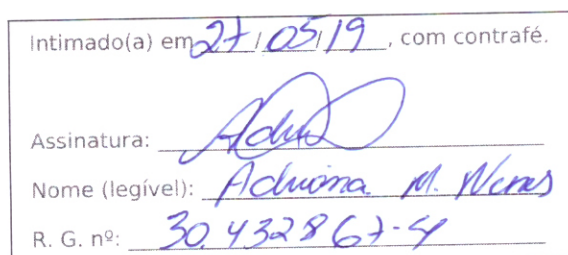 Intimado(a) em 27/05/19, com contrafé.
Assinatura:
Nome (legível): Adriana M. Neres
R. G. nº: 30.432867-4